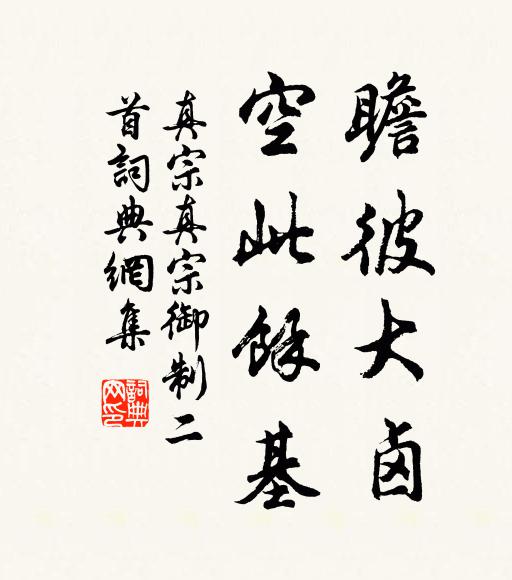 瞻彼大鹵
空此餘基
真宗真宗御制二
首詞典網集
詞典
网印